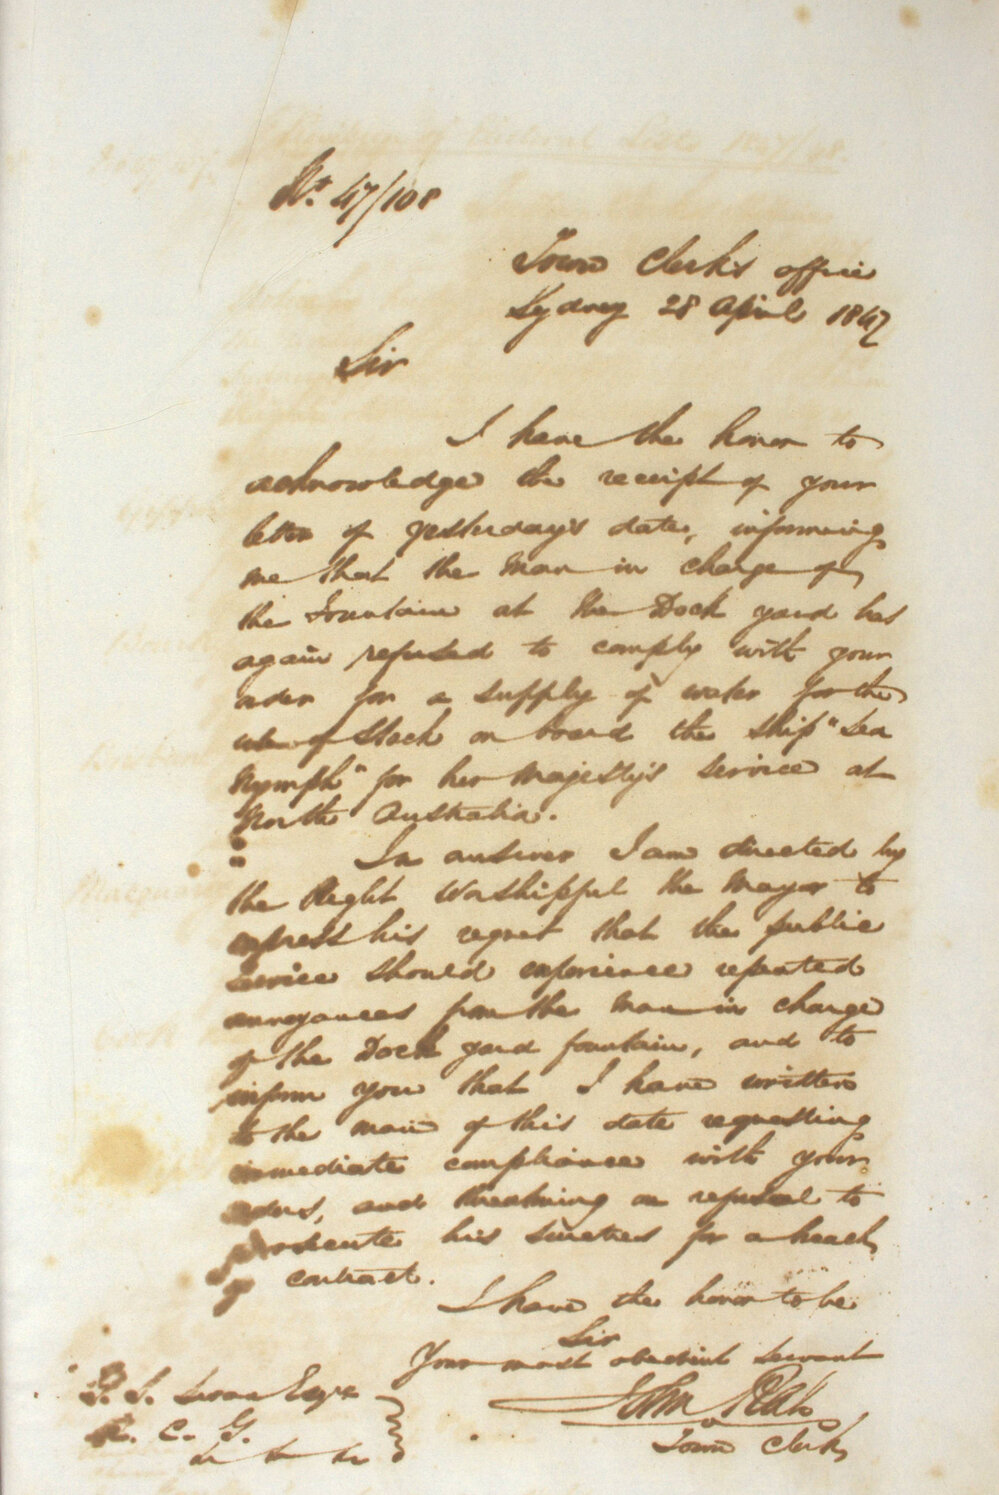 No. 47/108
Town Clerk's office
Sydney 28 April 1847
Sir
I have the honor to
acknowledge the receipt of your
letter of yesterday's date, informing
me that the Man in charge of
the Fountain at the Dock yard has
again refused to comply with your
order for a supply of water for the
use of Stock on board the ship "Sea
Nymph" for her Majesty's Service at
North Australia.
In answer I am directed by
the Right Worshipful the Mayor to
express his regret that the public
Service should experience repeated
annoyances from the man in charge
of the Dock yard fountain, and to
inform you that I have written
to the man of this date requesting
immediate compliance with your
orders, and threatning on refusal to
prosecute his sureties for a breach
of contract.
I have the honor to be
Sir
Your most obedient servant
John Rae
Town Clerk
Esqre
C. G.